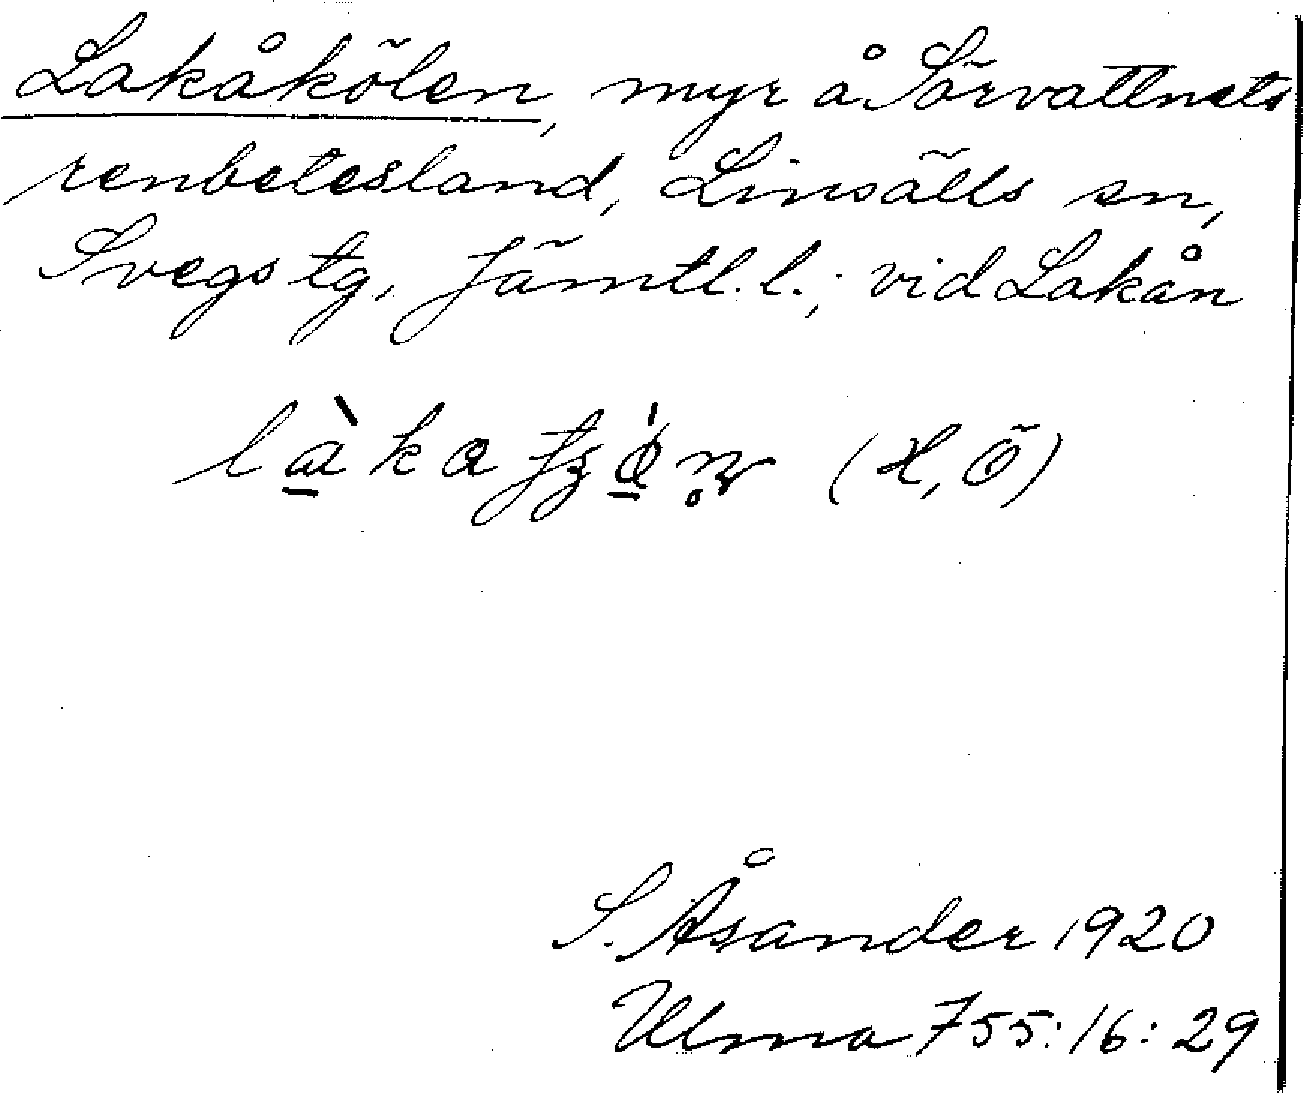 Lakåkölen, myr å Sörvattnets
renbetesland, Linsälls sn,
Svegs tg, Jämtl. l.; vid Lakån
(H, Ö)
S. Åsander 1920
Ulma 755:16:29